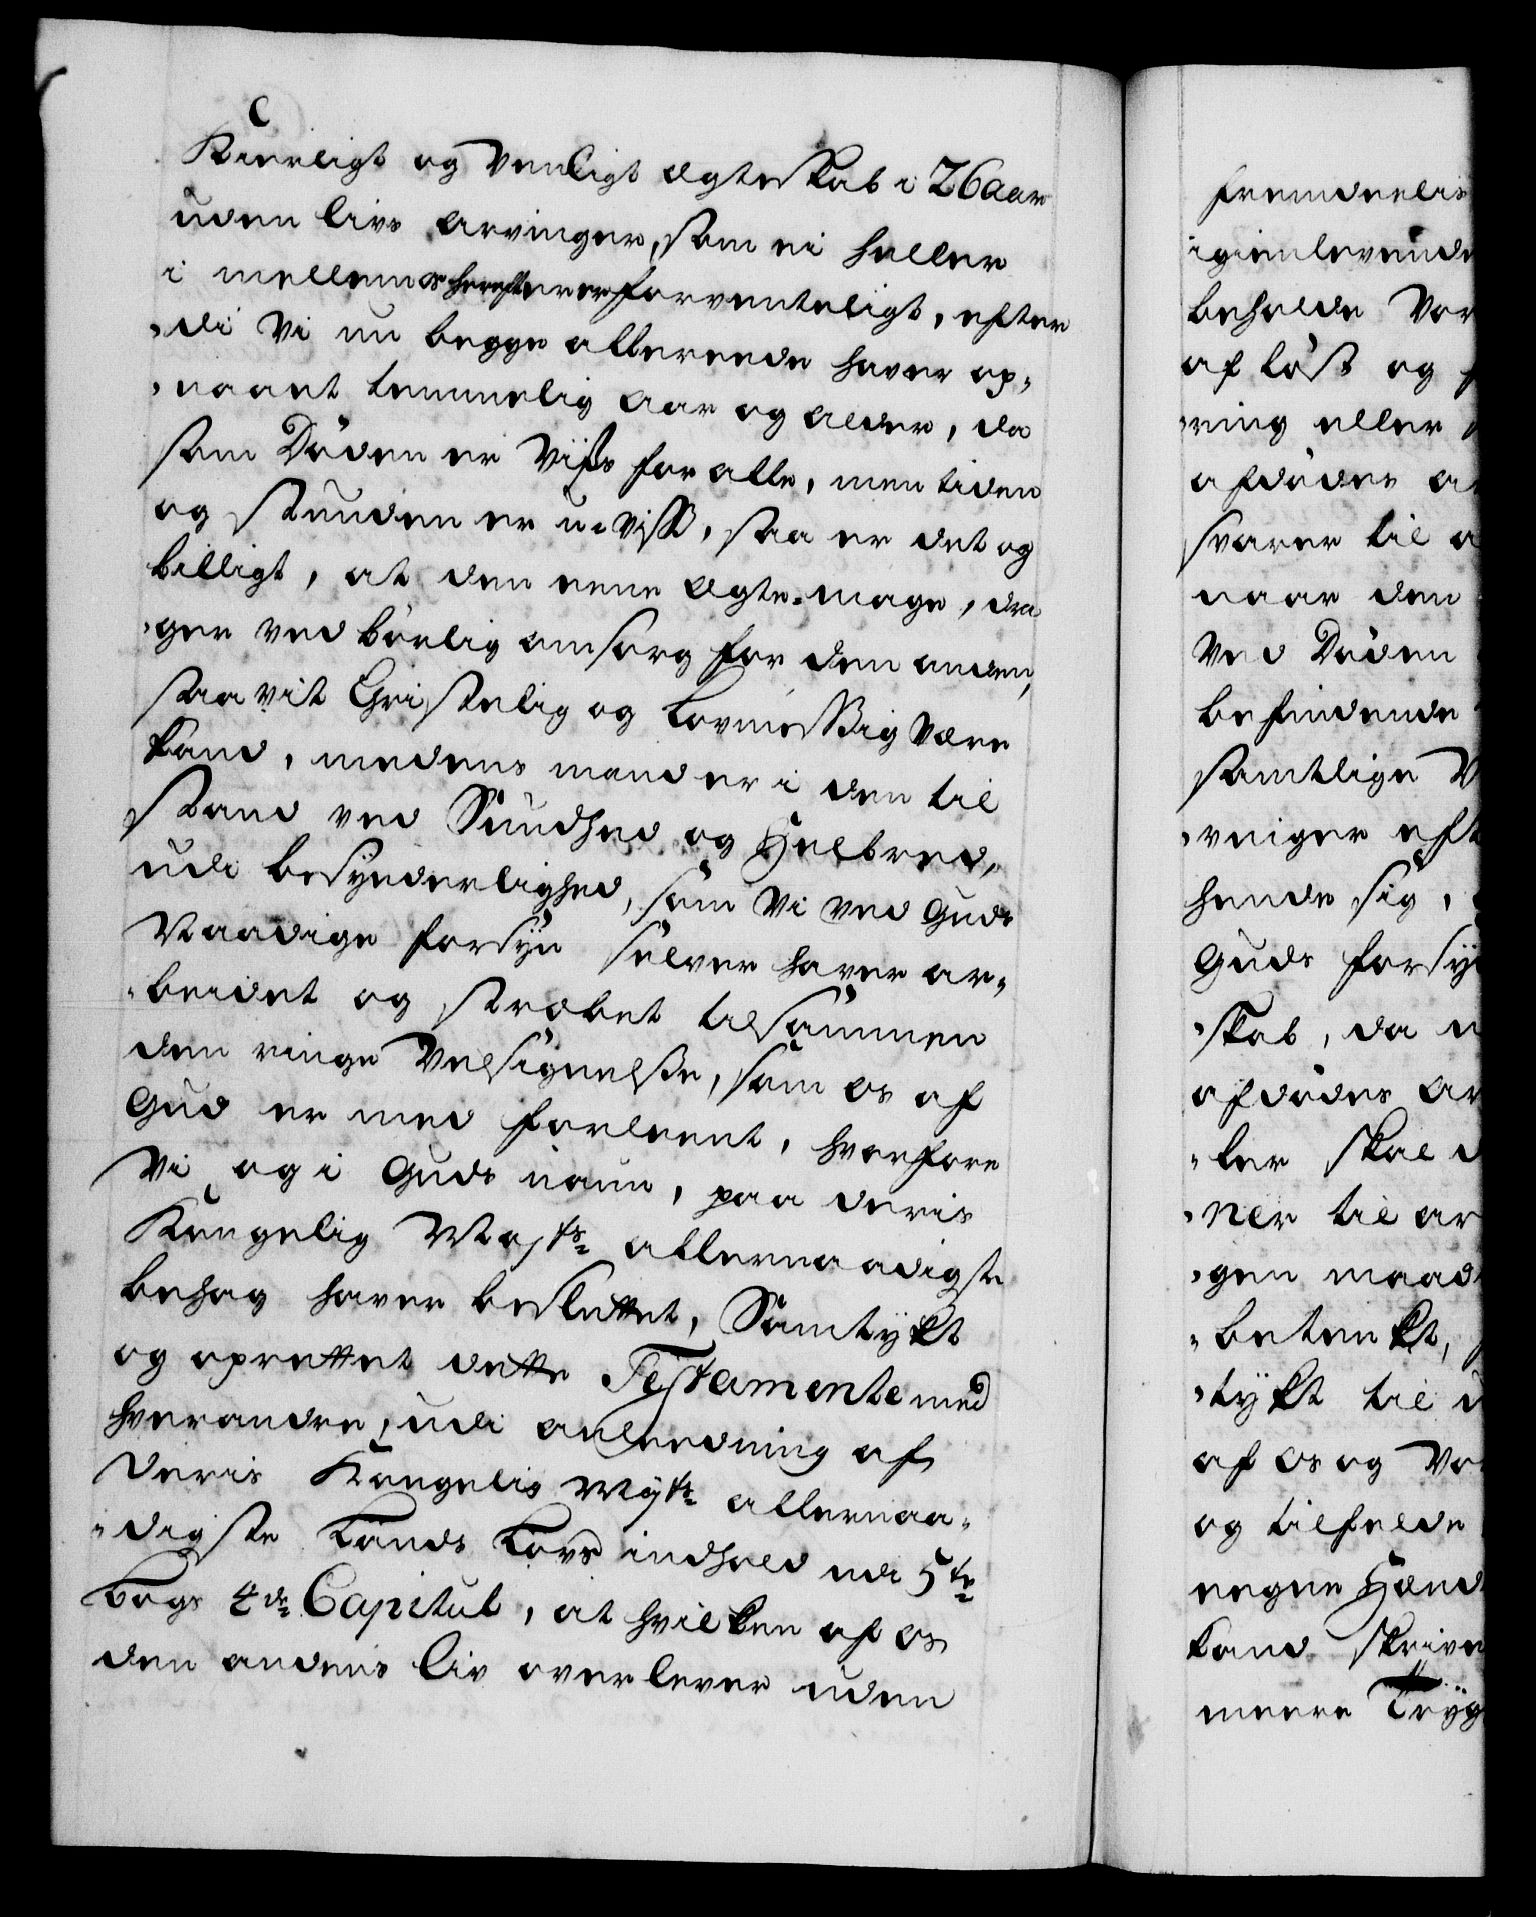 Kierligt og Venligt Ægteskab i 26 aar
uden livs arvinger, som ei heller
i mellem os herefter er forventeligt, efter
„di Vi nu begge allereede haver op„
„naaet temmelig aar og alder, da
som Døden er Viss for alle, men tiden
og stunden er u-viss, saa er det og
billigt, at den eene Ægte-mage, dra
„ger ved børlig omsorg for den anden,
saa vit Christelig og Lovmessig være
kand, medens mand er i den til
stand ved Sundhed og Helbred,
udi besynderlighed, som Vi ved Guds
Naadige forsyn selver haver ar„
„beidet og strebet tilsammen
den ringe Velsignelse, som os af
Gud er med forleent, hvorfore
Vi og i Guds navn, paa deris
Kongelig Mayts allernaadigste
behag haver besluttet, Samtykt
og oprettet dette Testamente med
hverandre, udi anleedning af
Deris Kongelig Mayts allernaa„
„digste Lands Lovs indhold udi 5te
Bogs 4de Capitul, at hvilken af os
den andens liv overlever uden
fremdeelis
igienlevende
beholde Vor
af løst og
„ring eller
afdødes a
svarer til a
naar den
Ved Døden
befindende
samtlige V
„reiger eft
hende sig,
Guds forsy
„skab, da
afdødes Ar
„ler skal d
„ner til ar
„gen maad
„betenkt,
„tykt til
af os og Vo
og tilfelde
eegne Hænd
kand skrive
meere Tryg